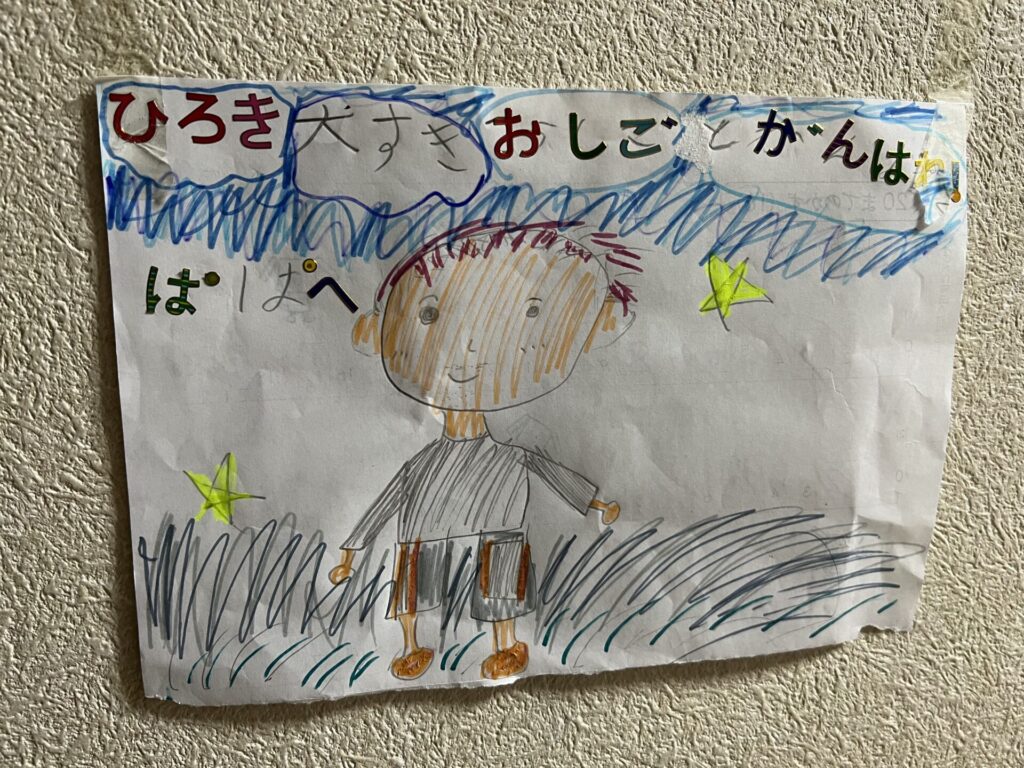 ひろき 大すき おしごと がんばれ!
ぱぱへ